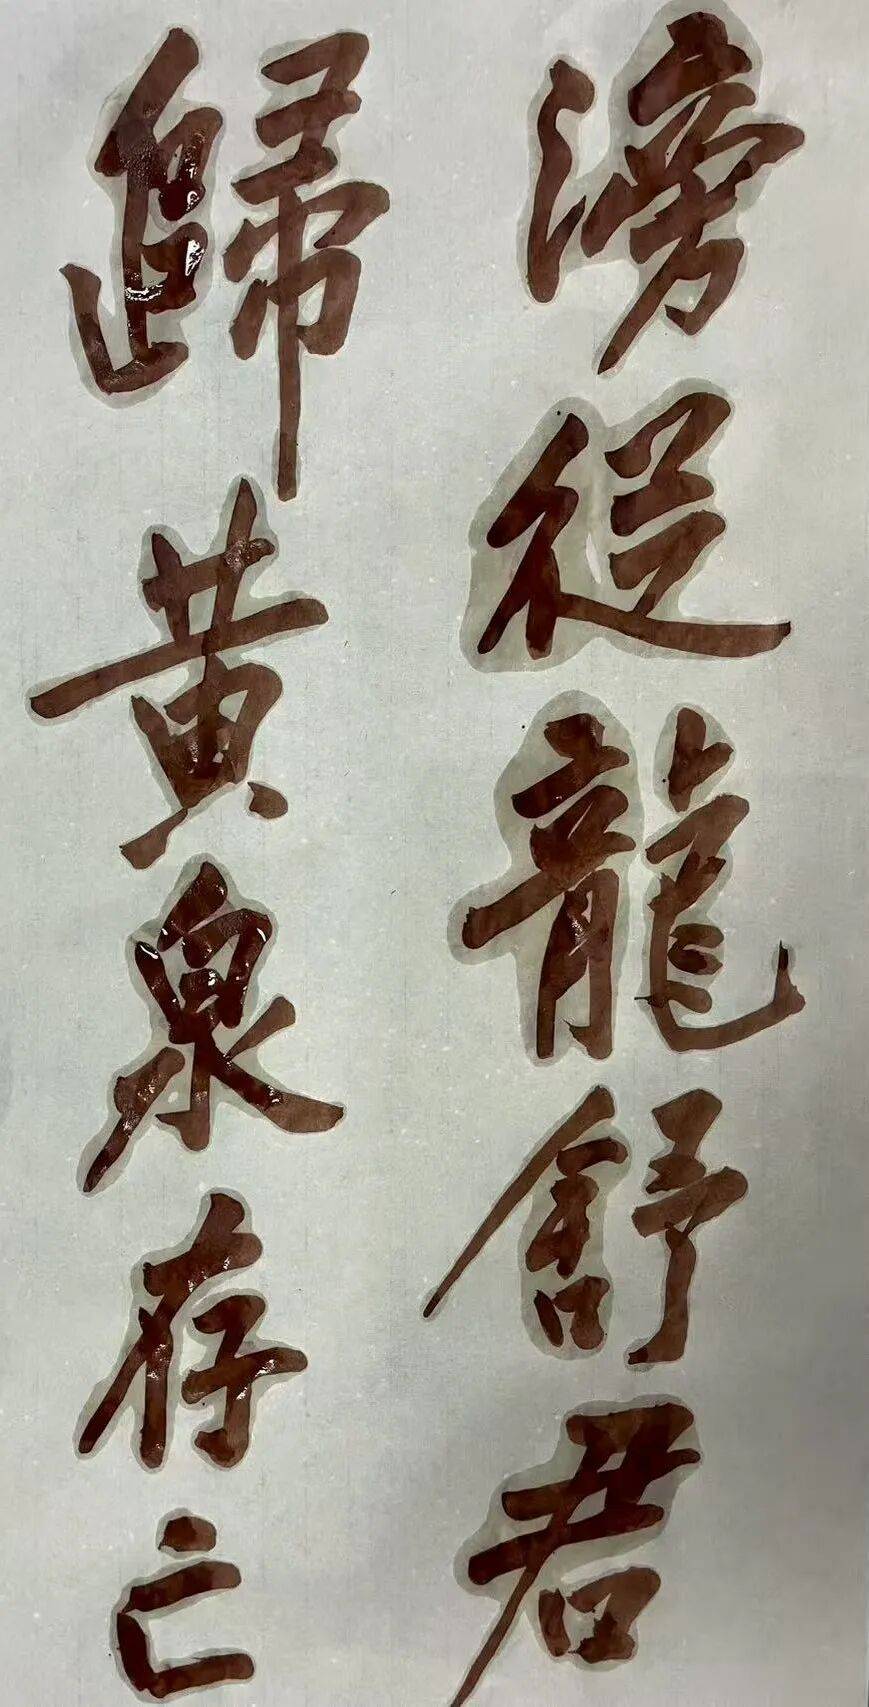 滂從龍舒君
歸黃泉存亡